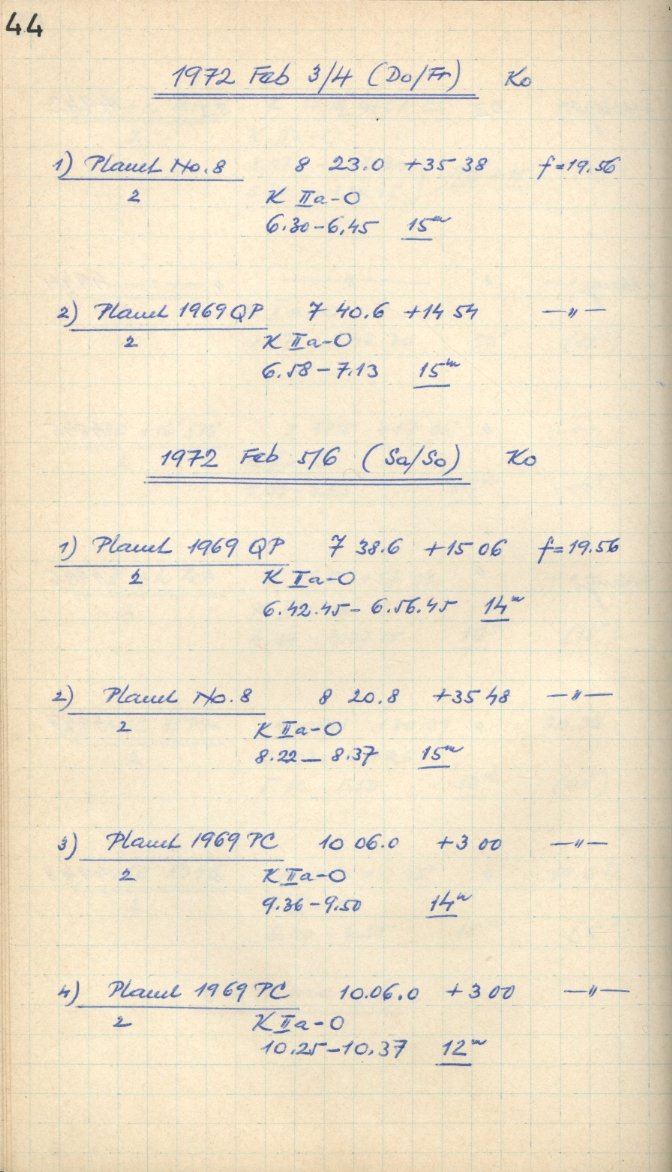 44
1972 Feb 3/4 (Do/Fr) Ko
1) Planet No. 8 8 23.0 +35 38 f=19.56
2 K IIa-O
6.30-6.45 15m
2) Planet 1969 QP 7 40.6 +14 54 —〃—
2 K IIa-O
6.58-7.13 15m
1972 Feb 5/6 (Sa/So) Ko
1) Planet 1969 QP 7 38.6 +15 06 f=19.56
2 K IIa-O
6.42.45-6.56.45 14m
2) Planet No. 8 8 20.8 +35 48 —〃—
2 K IIa-O
8.22-8.37 15m
3) Planet 1969 PC 10 06.0 +3 00 —〃—
2 K IIa-O
9.36-9.50 14m
4) Planet 1969 PC 10.06.0 +3 00 —〃—
2 K IIa-O
10.25-10.37 12m